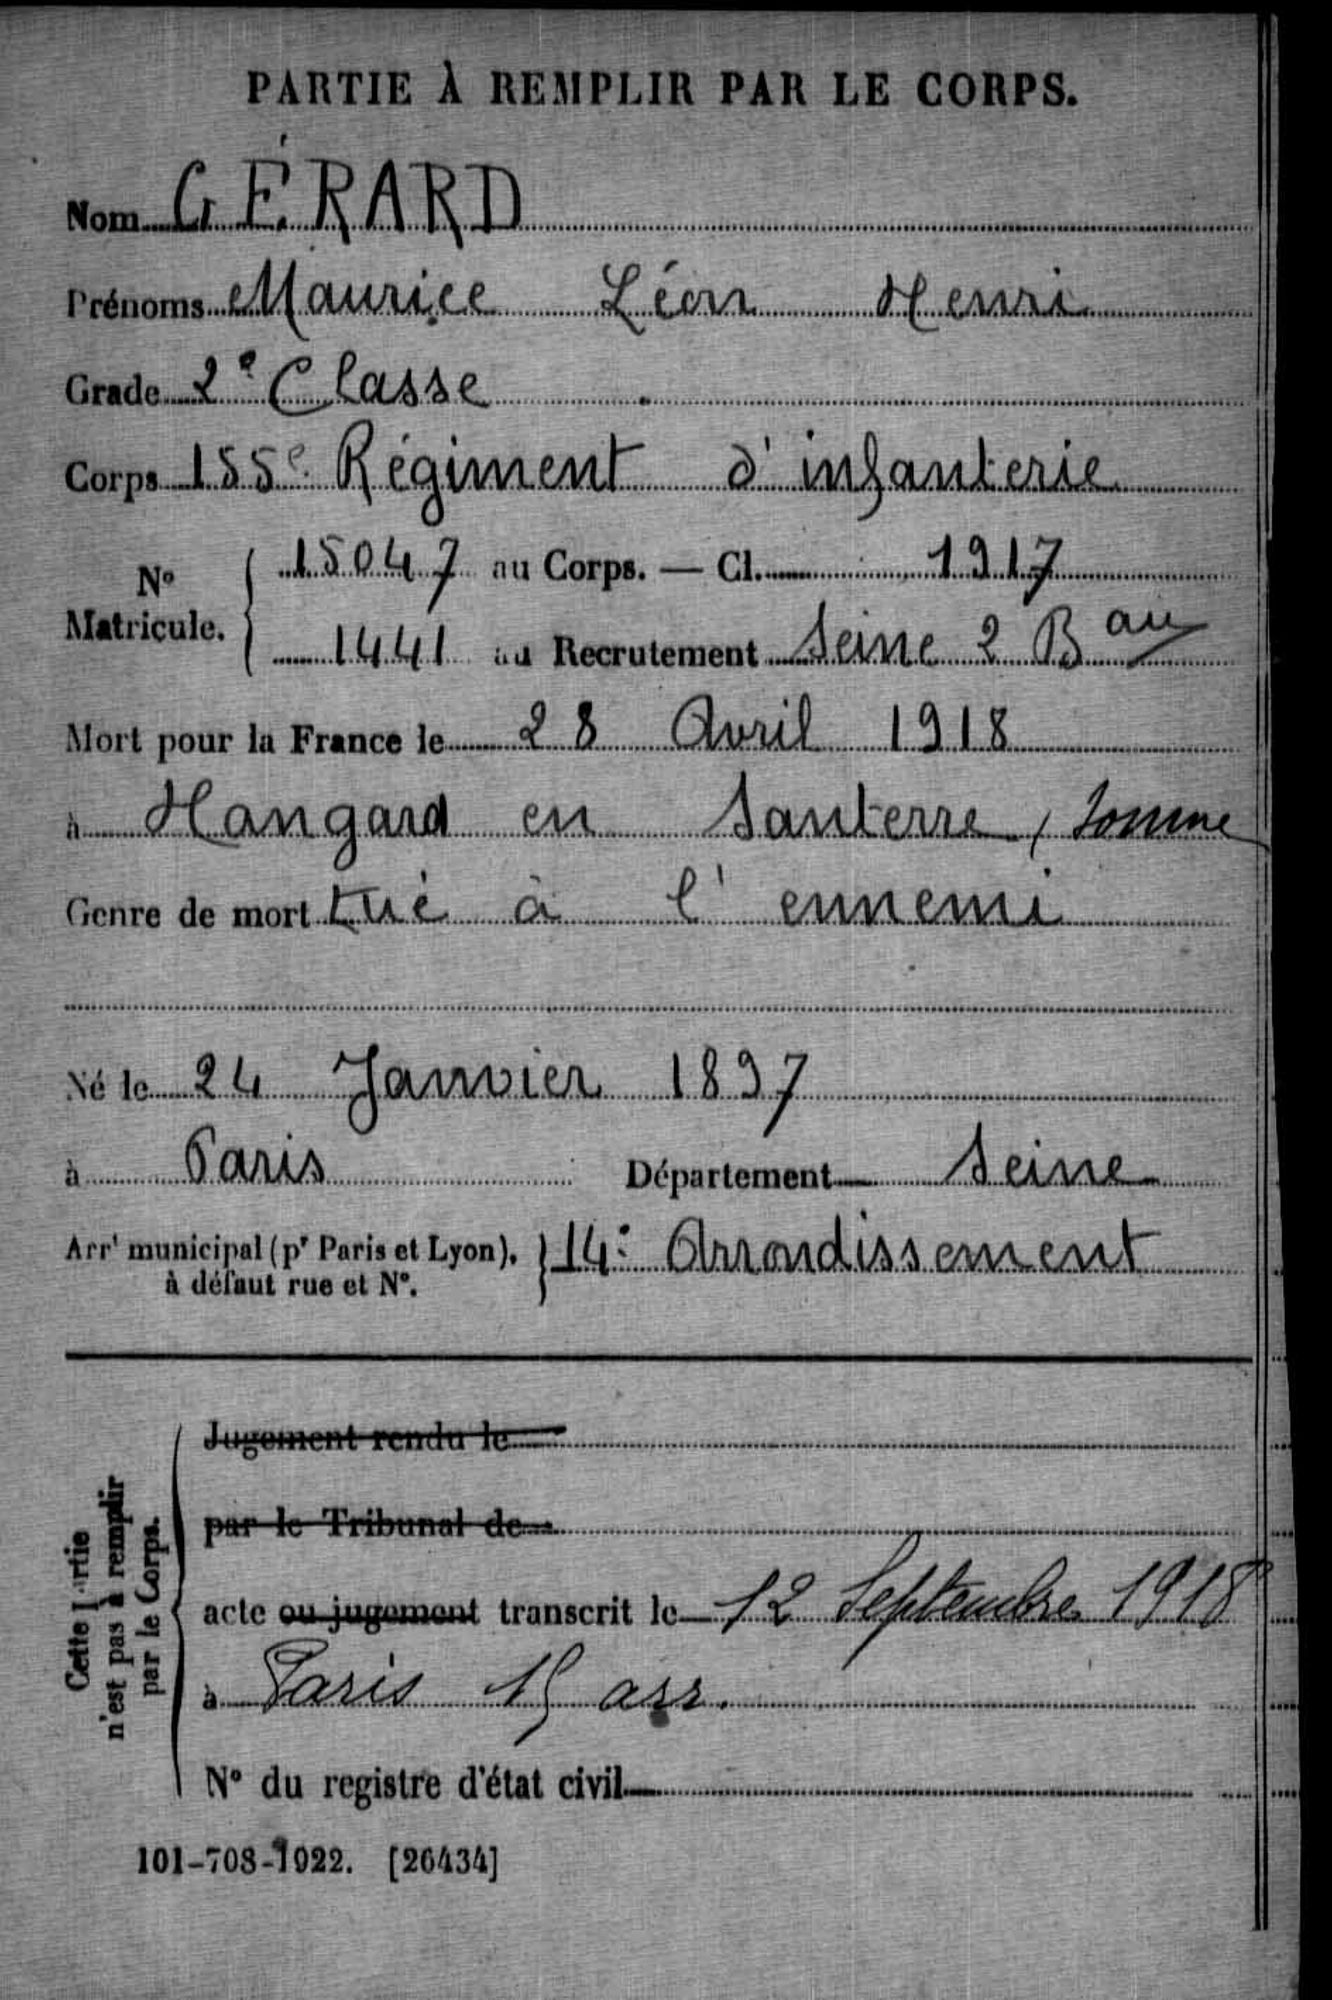 PARTIE À REMPLIR PAR LE CORPS.
Nom GÉRARD
Prénoms Maurice Léon Henri
Grade 2e Classe
Corps 155e Régiment d'infanterie
N° Matricule. 15047 au Corps. — Cl. 1917
1441 au Recrutement Seine 2 Bau
Mort pour la France le 28 Avril 1918
à Hangard en Santerre, Somme
Genre de mort tué à l'ennemi
Né le 24 Janvier 1897
à Paris Département Seine
Arrt municipal (pr Paris et Lyon), à défaut rue et N°. 14e Arrondissement
Cette partie n'est pas à remplir par le Corps.
Jugement rendu le
par le Tribunal de
acte ou jugement transcrit le 12 Septembre 1918
à Paris 15 arr.
N° du registre d'état civil
101-708-1922. [26434]